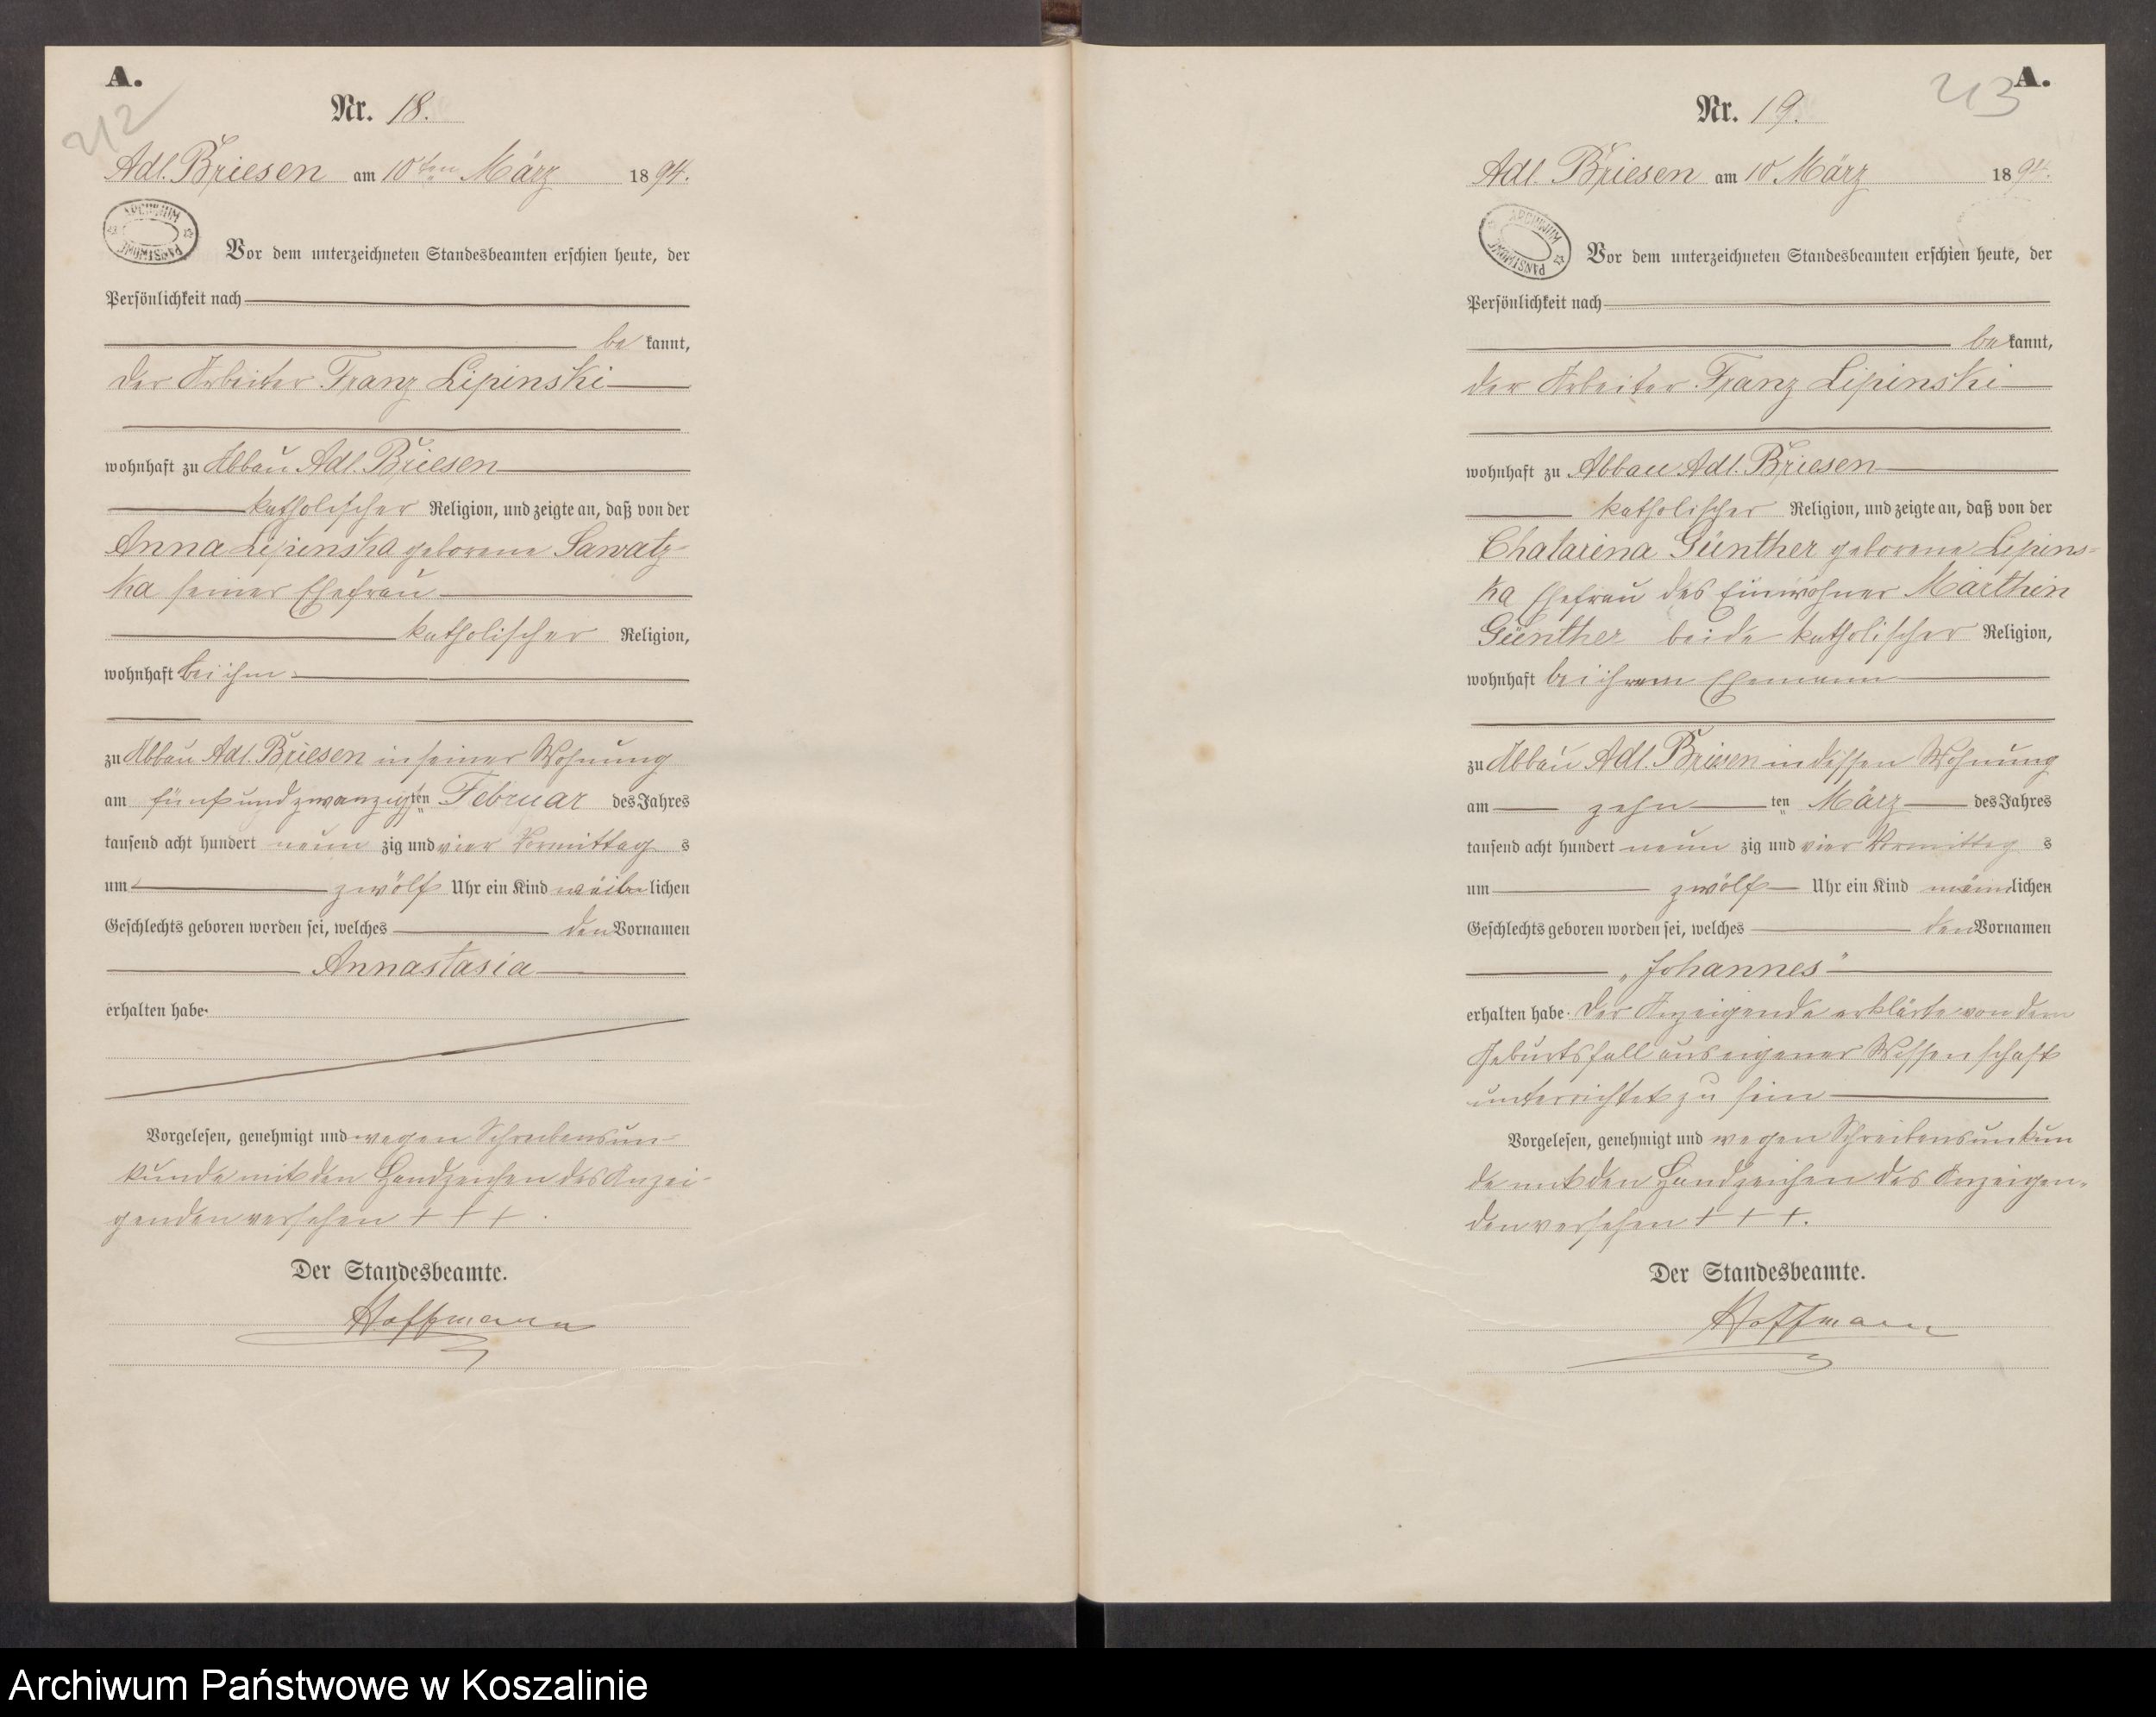 A.
212
Nr. 18.
Adl. Briesen am 10ten März 1894.
ARCHIWUM PAŃSTWOWE
Vor dem unterzeichneten Standesbeamten erschien heute, der
Persönlichkeit nach
be kannt,
der Arbeiter Franz Lipinski
wohnhaft zu Abbau Adl. Briesen
katholischer Religion, und zeigte an, daß von der
Anna Lipinska geborene Sawatz-
ka seiner Ehefrau
katholischer Religion,
wohnhaft bei ihm
zu Abbau Adl. Briesen in seiner Wohnung
am fünfundzwanzigsten Februar des Jahres
tausend acht hundert neun zig und vier Vormittag s
um zwölf Uhr ein Kind weib lichen
Geschlechts geboren worden sei, welches den Vornamen
Annastasia
erhalten habe.
Vorgelesen, genehmigt und wegen Schreibensun-
kunde mit den Handzeichen des Anzei-
genden versehen + + +.
Der Standesbeamte.
Hoffmann
A.
213
Nr. 19.
Adl. Briesen am 10 März 1894.
ARCHIWUM PAŃSTWOWE
Vor dem unterzeichneten Standesbeamten erschien heute, der
Persönlichkeit nach
be kannt,
der Arbeiter Franz Lipinski
wohnhaft zu Abbau Adl. Briesen
katholischer Religion, und zeigte an, daß von der
Chatarina Günther geborene Lipins-
ka Ehefrau des Einwohner Marthin
Günther beide katholischer Religion,
wohnhaft bei ihrem Ehemann
zu Abbau Adl. Briesen in dessen Wohnung
am zehn ten März des Jahres
tausend acht hundert neun zig und vier Vormittag s
um zwölf Uhr ein Kind männlichen
Geschlechts geboren worden sei, welches den Vornamen
„Johannes"
erhalten habe. Der Anzeigende erklärte von dem
Geburtsfall aus eigener Wissenschaft
unterrichtet zu sein
Vorgelesen, genehmigt und wegen Schreibensunkun
de mit den Handzeichen des Anzeigen-
den versehen + + +.
Der Standesbeamte.
Hoffmann
Archiwum Państwowe w Koszalinie